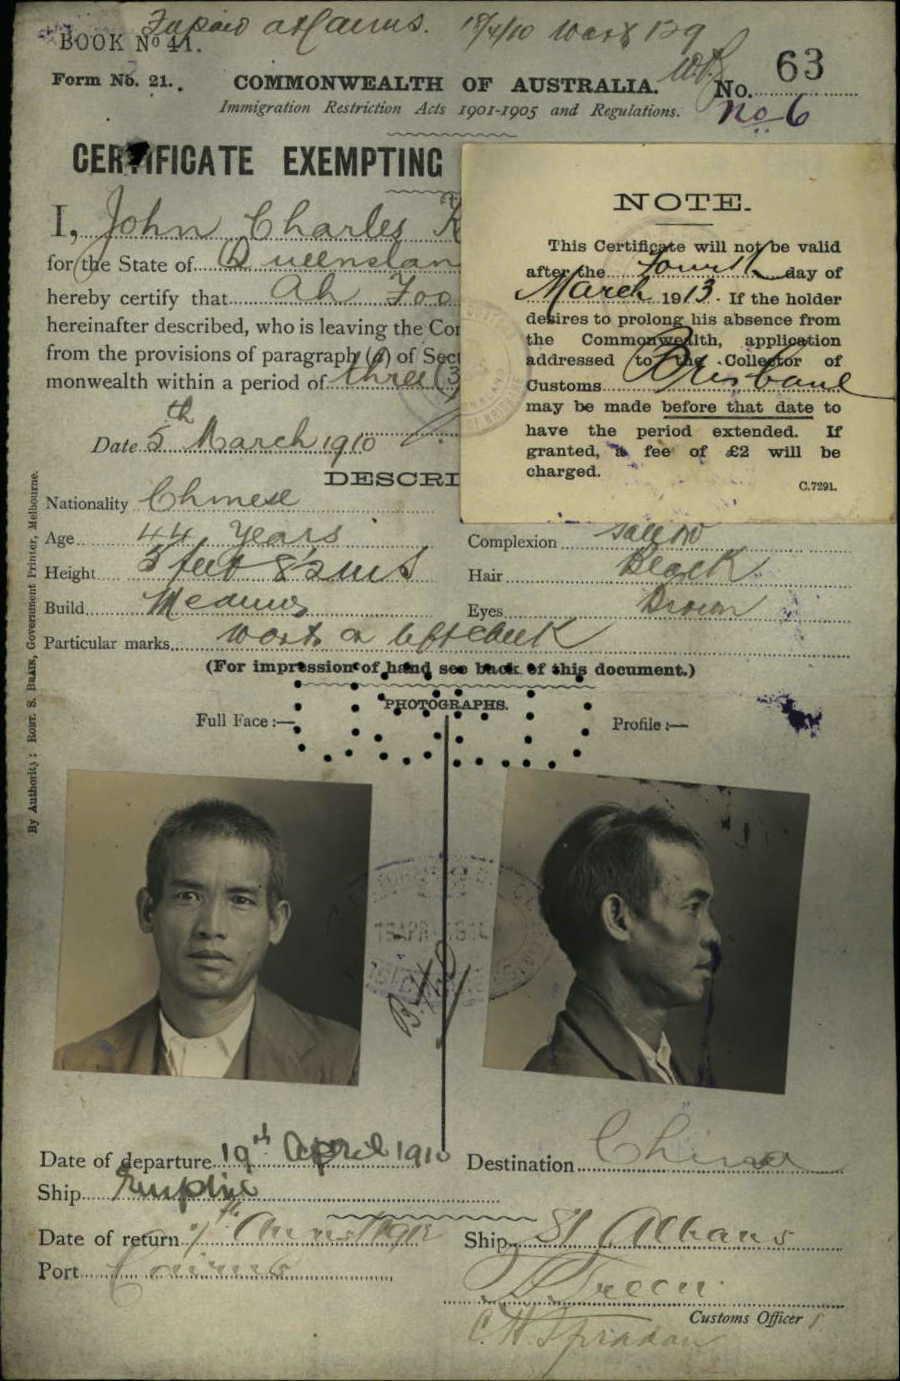 BOOK No 41.
at Cairns. 18/4/10
Form No. 21.
COMMONWEALTH OF AUSTRALIA.
No. 63
Immigration Restriction Acts 1901-1905 and Regulations.
No 6
CERTIFICATE EXEMPTING
I, John Charles K
for the State of Queenslan
hereby certify that Ah Foo
hereinafter described, who is leaving the Co
from the provisions of paragraph of Sec
monwealth within a period of three (3
Date 5th March 1910
DESCRI
NOTE.
This Certificate will not be valid
after the fourth day of
March 1913. If the holder
desires to prolong his absence from
the Commonwealth, application
addressed to the Collector of
Customs Brisbane
may be made before that date to
have the period extended. If
granted, a fee of £2 will be
charged.
C.7291.
Nationality Chinese
Age 44 years
Complexion Sallow
Height 5 feet 8½ ins
Hair Black
Build Medium
Eyes Brown
Particular marks wart on left cheek
(For impression of hand see back of this document.)
PHOTOGRAPHS.
Full Face :—
Profile :—
By Authority : ROBT. S. BRAIN, Government Printer, Melbourne.
Date of departure 19th April 1910
Destination China
Ship Empire
Date of return
Ship St Albans
Port Cairns
Customs Officer